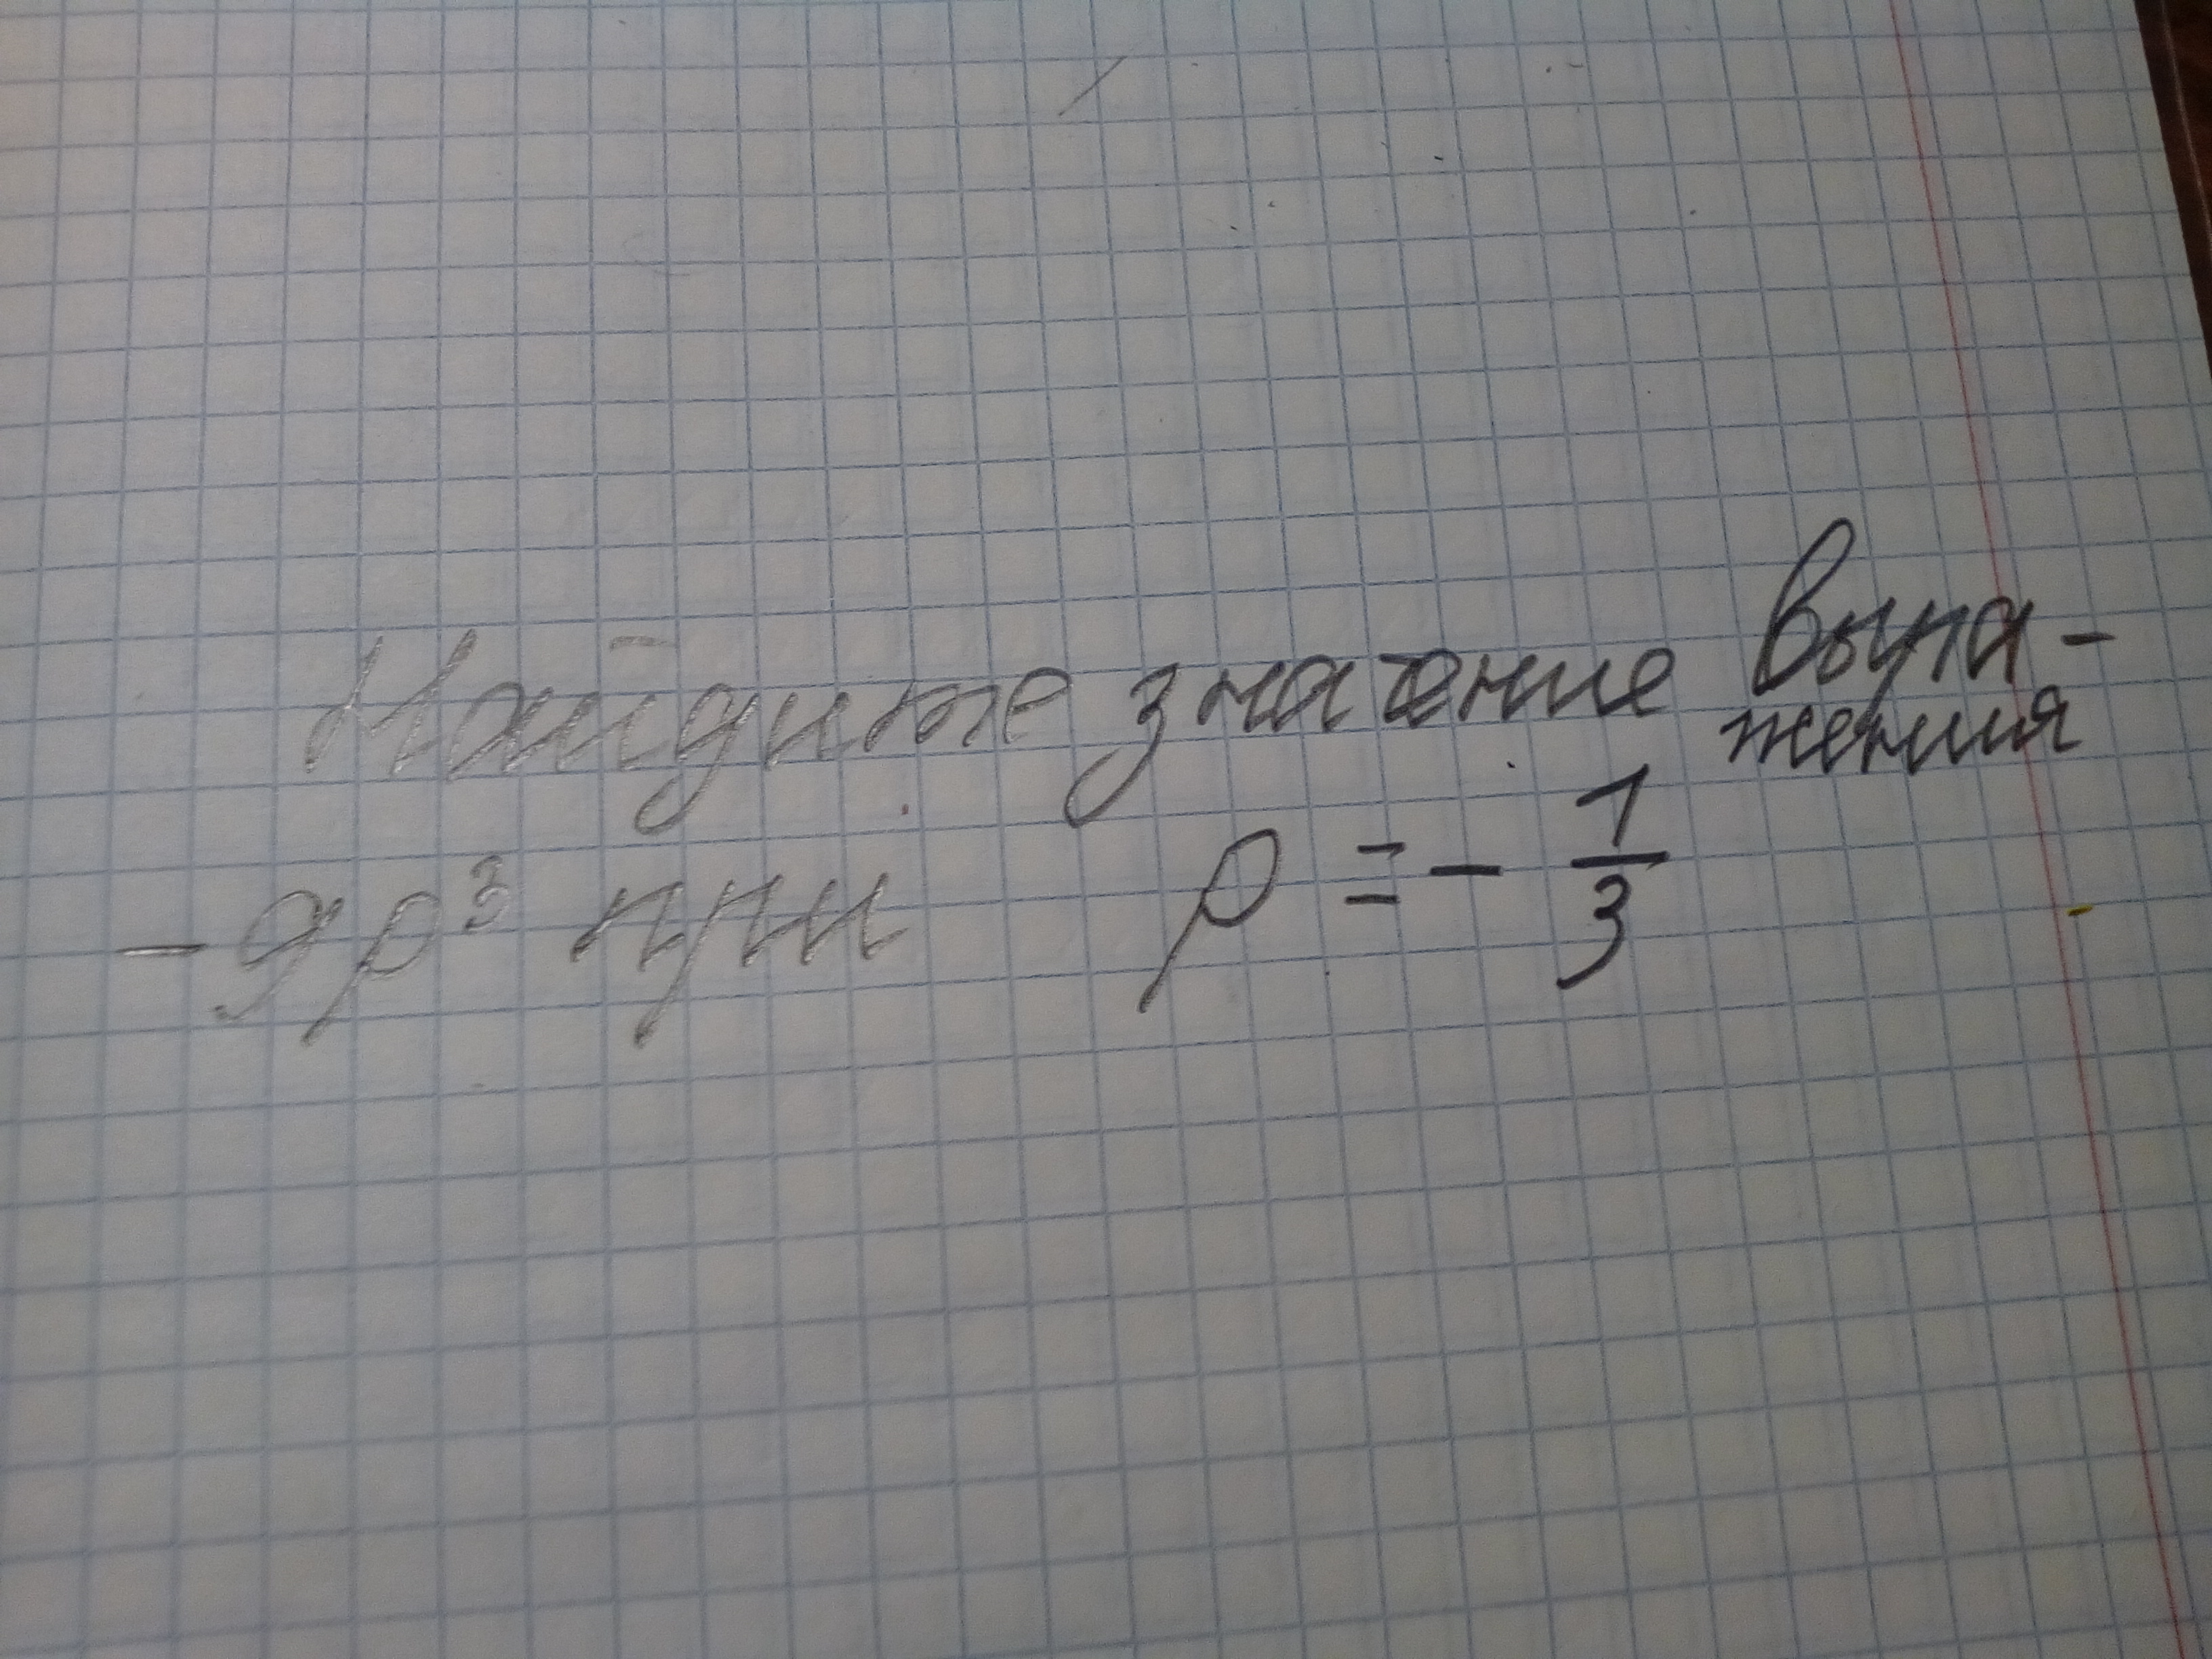 Найдите значение выра-
жения
-9p³ при p = - 1/3